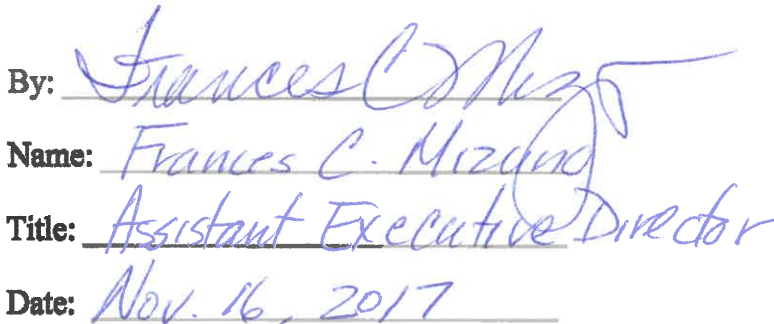 By: Frances C Miz
Name: Frances C. Mizuno
Title: Assistant Executive Director
Date: Nov. 16, 2017